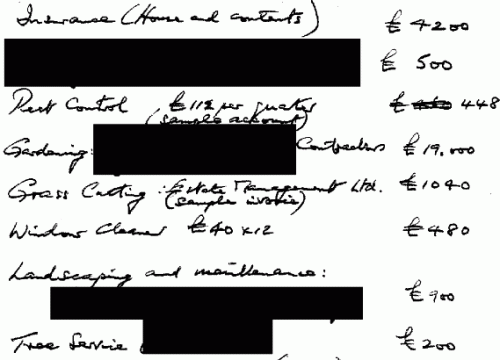 Insurance (House and contents) £ 4200
£ 500
Pest Control £112 per quarter £ 448
(sample account)
Gardening: Contractors £ 19,000
Grass Cutting : Estate Management Ltd. £1040
(sample invoice)
Window Cleaner £40 x 12 £ 480
Landscaping and maintenance:
£ 900
Tree Service £ 200